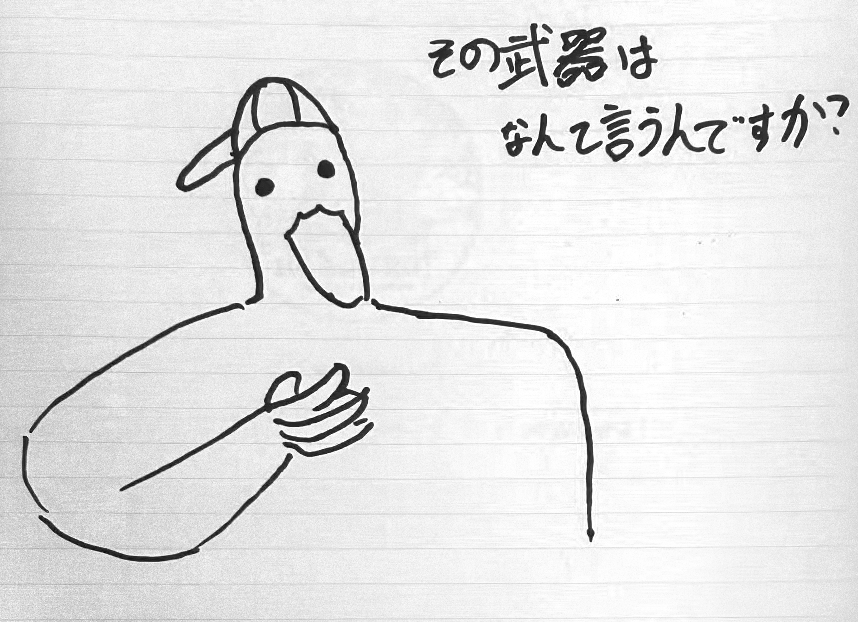 その武器は
なんて言うんですか?